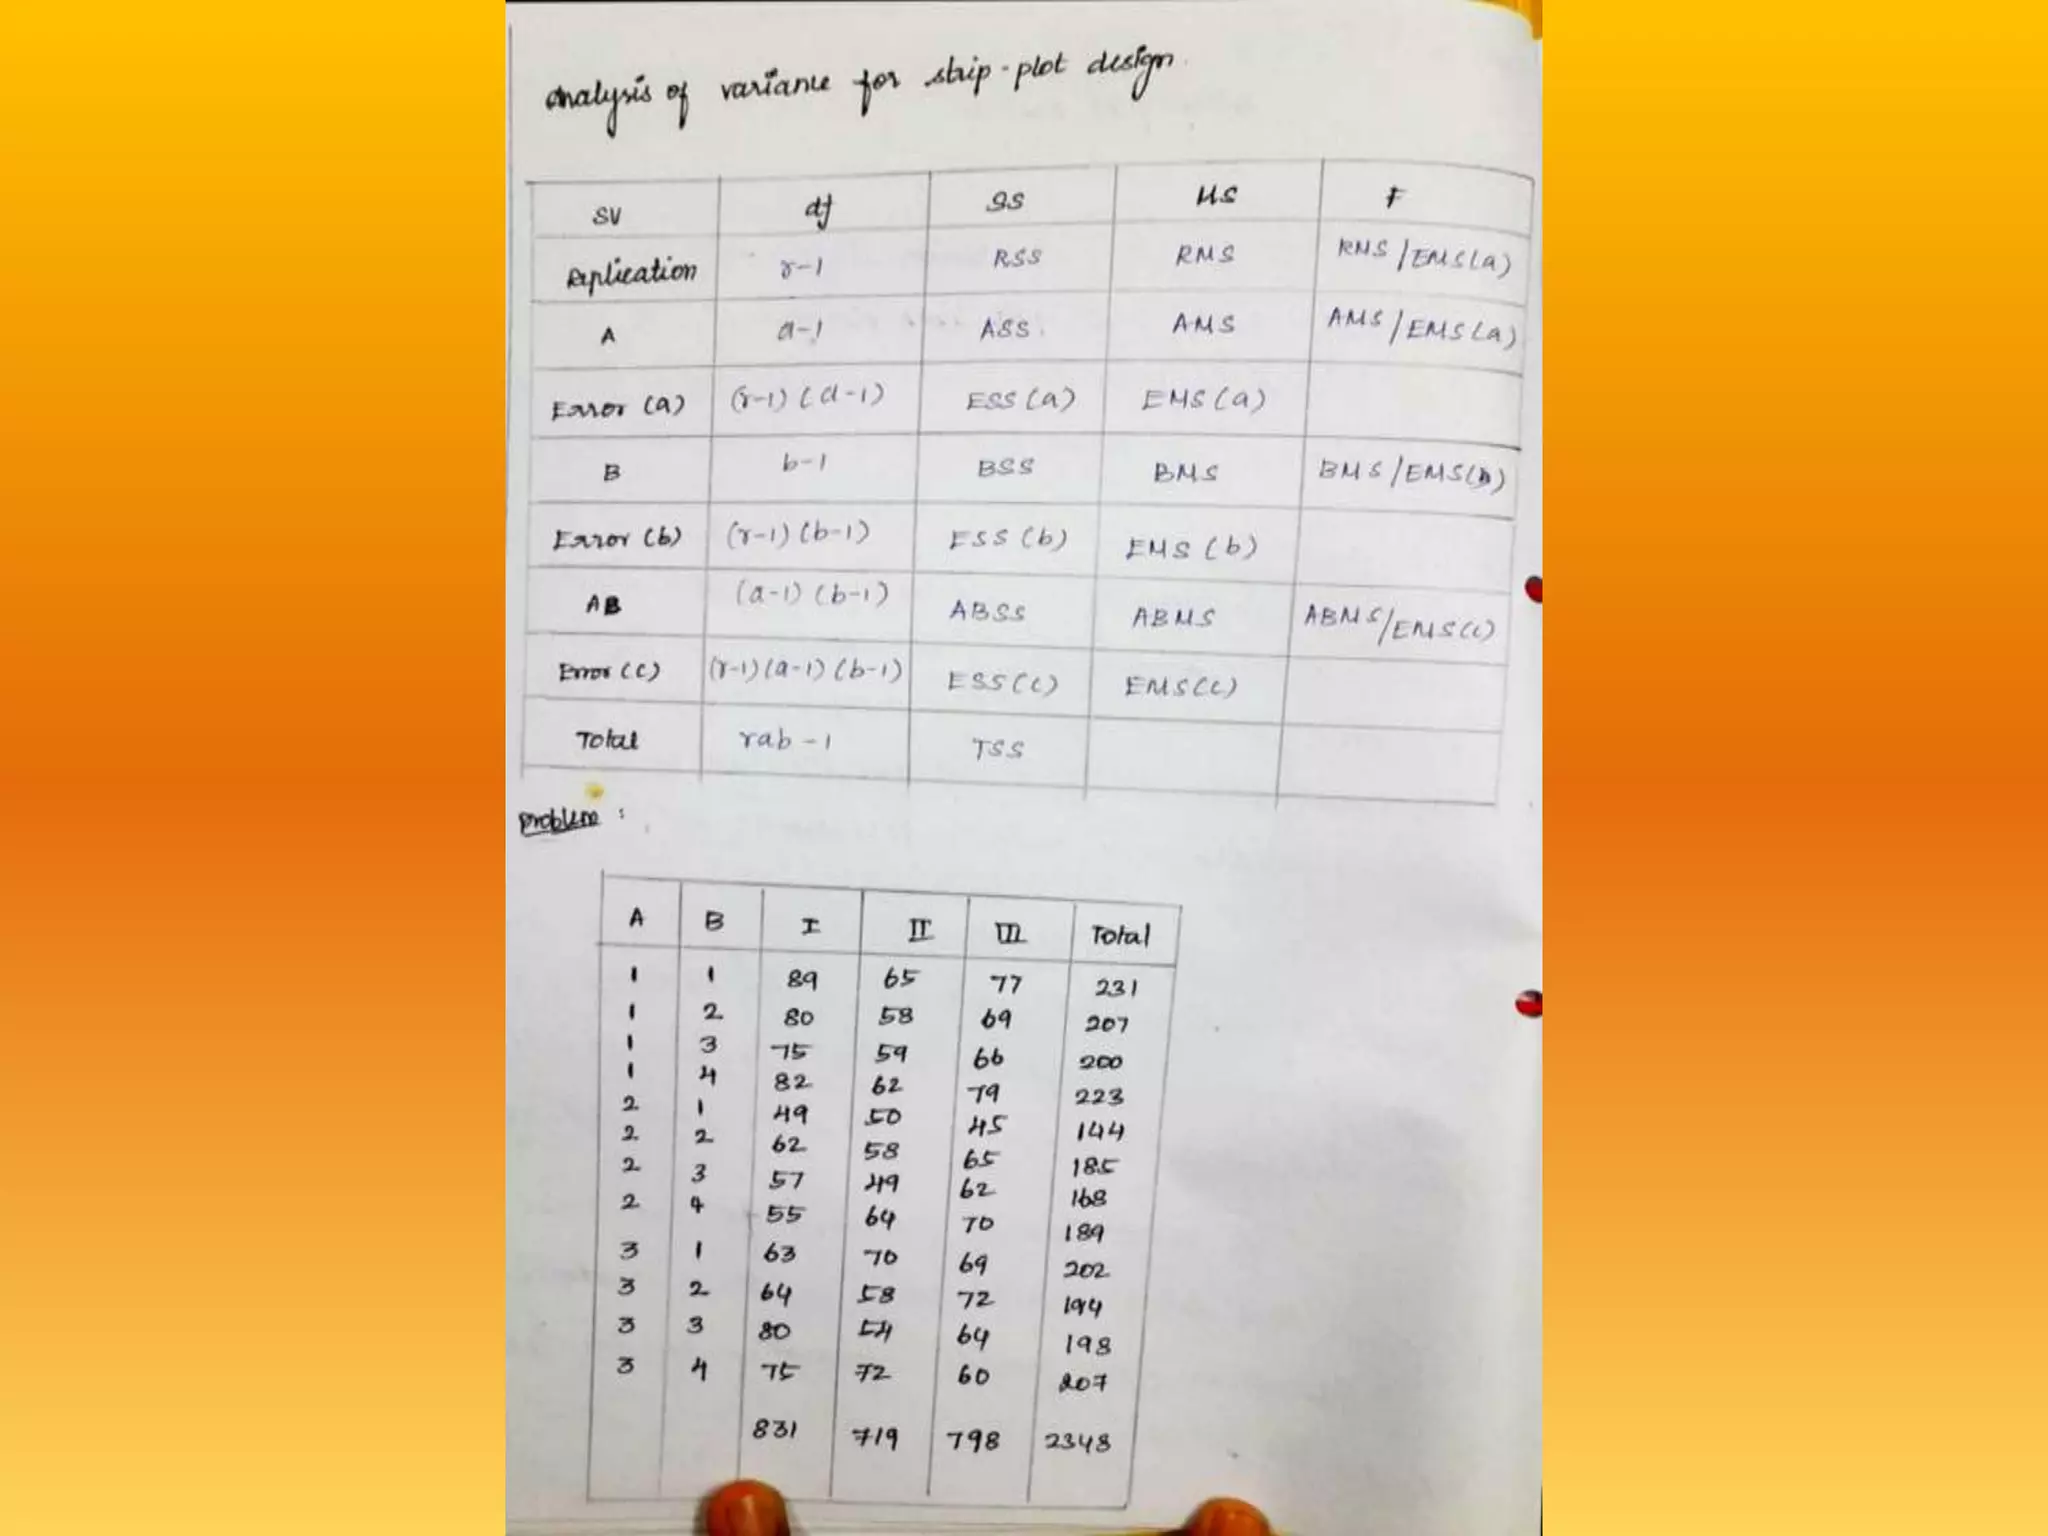 Analysis of variance for strip-plot design.
SV df SS MS F
Replication r-1 RSS RMS RMS/EMS(a)
A a-1 ASS AMS AMS/EMS(a)
Error (a) (r-1) (a-1) ESS (a) EMS (a)
B b-1 BSS BMS BMS/EMS(b)
Error (b) (r-1) (b-1) ESS (b) EMS (b)
AB (a-1) (b-1) ABSS ABMS ABMS/EMS(c)
Error (c) (r-1) (a-1) (b-1) ESS (c) EMS (c)
Total rab -1 TSS
Problem :
A B I II III Total
1 1 89 65 77 231
1 2 80 58 69 207
1 3 75 59 66 200
1 4 82 62 79 223
2 1 49 50 45 144
2 2 62 58 65 185
2 3 57 49 62 168
2 4 55 64 70 189
3 1 63 70 69 202
3 2 64 58 72 194
3 3 80 54 64 198
3 4 75 72 60 207
831 719 798 2348